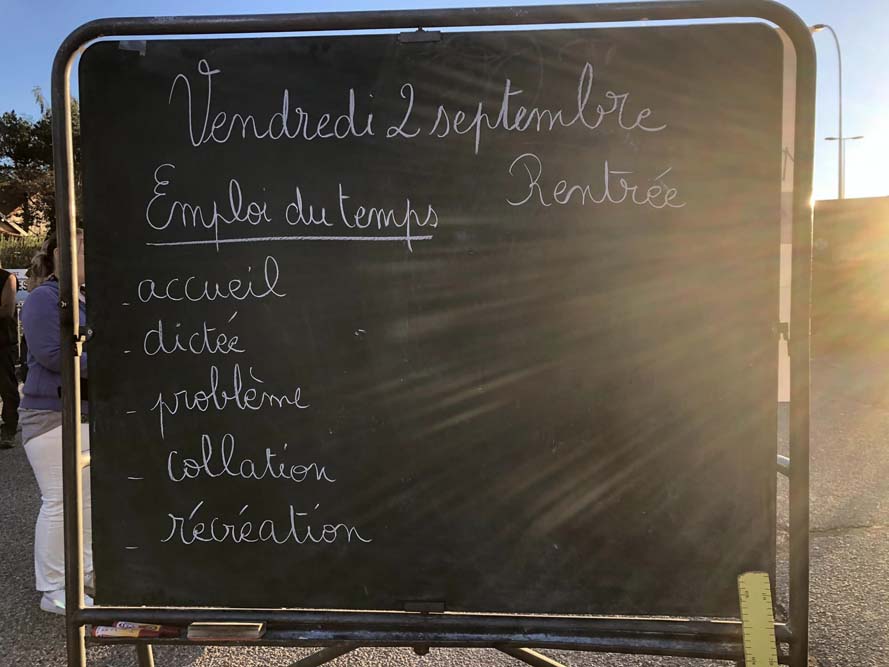 Vendredi 2 septembre
Rentrée
Emploi du temps
- accueil
- dictée
- problème
- collation
- récréation